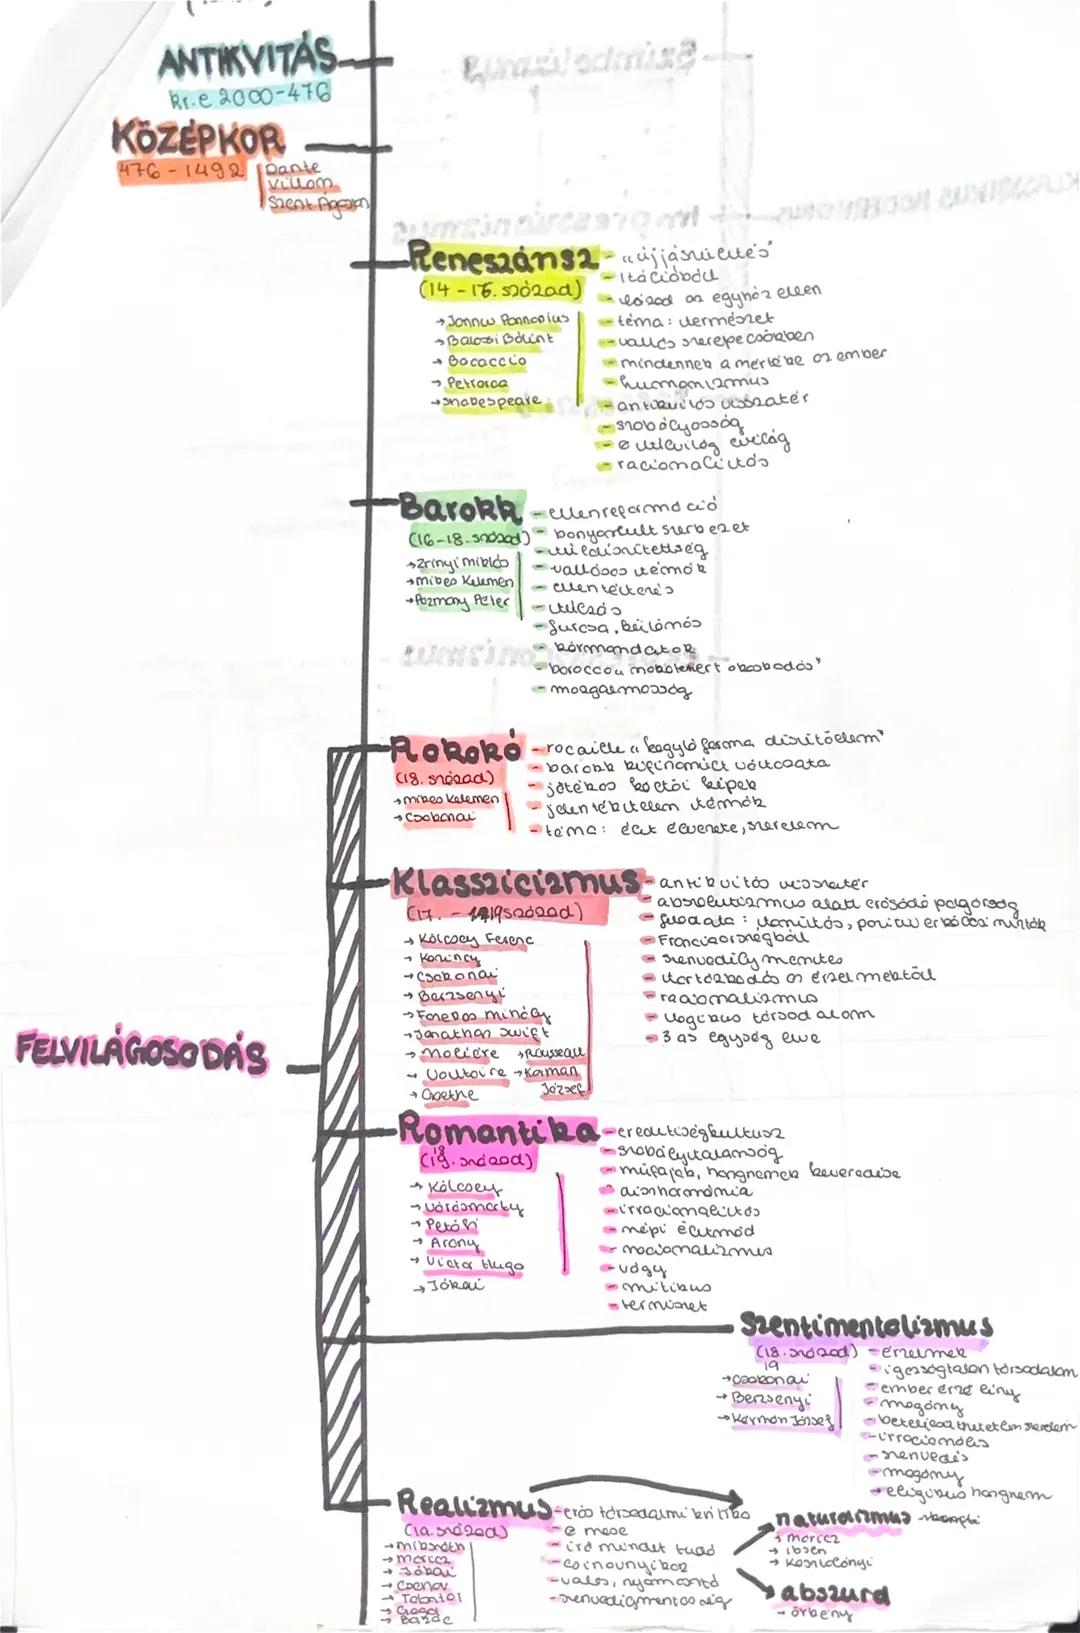 ANTIKVITÁS
kr.e 2000-476
KÖZÉPKOR
476 - 1492
Dante
Villom
Szent Ágoston
Reneszánsz
(14 - 16. század)
→ Jannus Pannonius
→ Balassi Bálint
→ Bocaccio
→ Petrarca
→ Shakespeare
- "újjászületés"
- Itáliából
- lázad az egyház ellen
- téma: természet
- vallás szerepe csökken
- mindennek a mértéke az ember
- humanizmus
- antikvitás visszatér
- szabályosság
- ø túlvilág evilág
- racionalitás
Barokk
(16-18. század)
→ Zrínyi Miklós
→ Mikes Kelemen
→ Pázmány Péter
- ellenreformáció
- bonyorult szerkezet
- túldíszítettség
- vallásos témák
- ellentétezés
- túlzás
- furcsa, bei lómós
- körmondatok
- barocco "nyakatekert okoskodás"
- mozgalmasság
Rokokó
(18. század)
→ Mikes Kelemen
→ Csokonai
- rocaille "kagyló forma díszítőelem"
- barokk kifinomult változata
- játékos költői képek
- jelentéktelen témák
- téma: élet élvezete, szerelem
Klasszicizmus
(17. - 19 század)
→ Kölcsey Ferenc
→ Kazinczy
→ Csokonai
→ Berzsenyi
→ Fazekas Mihály
→ Jonathan Swift
→ Moliére → Rousseau
→ Voltaire → Kármán József
→ Goethe
- antikvitás visszatér
- abszolutizmus alatt erősödő polgárság
- feladata: tanítás, pozitív erkölcsi minták
- Franciaországból
- szenvedélymentes
- tartózkodás az érzelmektől
- racionalizmus
- logikus társadalom
- 3 as egység elve
FELVILÁGOSODÁS
Romantika
18
(19. század)
→ Kölcsey
→ Vörösmarty
→ Petőfi
→ Arany
→ Victor Hugo
→ Jókai
- eredetiségkultusz
- szabálytalanság
- műfajok, hangnemek keveredése
- diszharmónia
- irracionalitás
- népi életmód
- nacionalizmus
- vágy
- mitikus
- természet
Szentimentalizmus
(18. század)
19
→ Csokonai
→ Berzsenyi
→ Kármán József
- érzelmek
- igazságtalan társadalom
- ember érző lény
- magány
- beteljesíthetetlen szerelem
- irracionális
- szenvedés
- magány
- elégikus hangnem
Realizmus
(19. század)
→ Mikszáth
→ Móricz
→ Jókai
→ Csehov
→ Tolsztoj
→ Gogol
→ Balzac
- erős társadalmi kritika
- ø mese
- író mindent tudó
- valós, nyomasztó
- szenvedélymentesség
naturalizmus
→ Móricz
→ Ibsen
→ Kosztolányi
abszurd
- Örkény